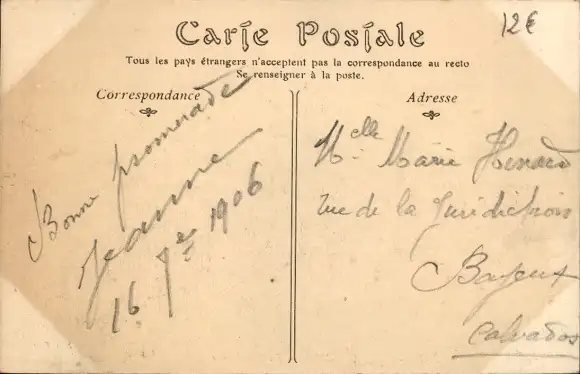 Carte Postale
12€
Tous les pays étrangers n'acceptent pas la correspondance au recto
Se renseigner à la poste.
Correspondance
Adresse
Bonne promenade
Jeanne
16 7re 1906
Melle Marie Henard
rue de la Juridiction
Bayeux
Calvados